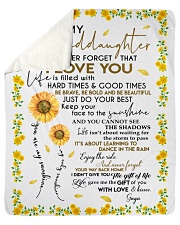 MY
ddaughter
ER FORGET THAT
I LOVE YOU
life is filled with
HARD TIMES & GOOD TIMES
BE BRAVE, BE BOLD AND BE BEAUTIFUL
JUST DO YOUR BEST
Keep your
face to the sunshine
AND YOU CANNOT SEE
THE SHADOWS
Life isn't about waiting for
the storm to pass
IT'S ABOUT LEARNING TO
DANCE IN THE RAIN
Enjoy the ride
And never forget
YOUR WAY BACK HOME
I DIDN'T GIVE YOU the gift of life
Life gave me the GIFT of you
WITH LOVE & kisses,